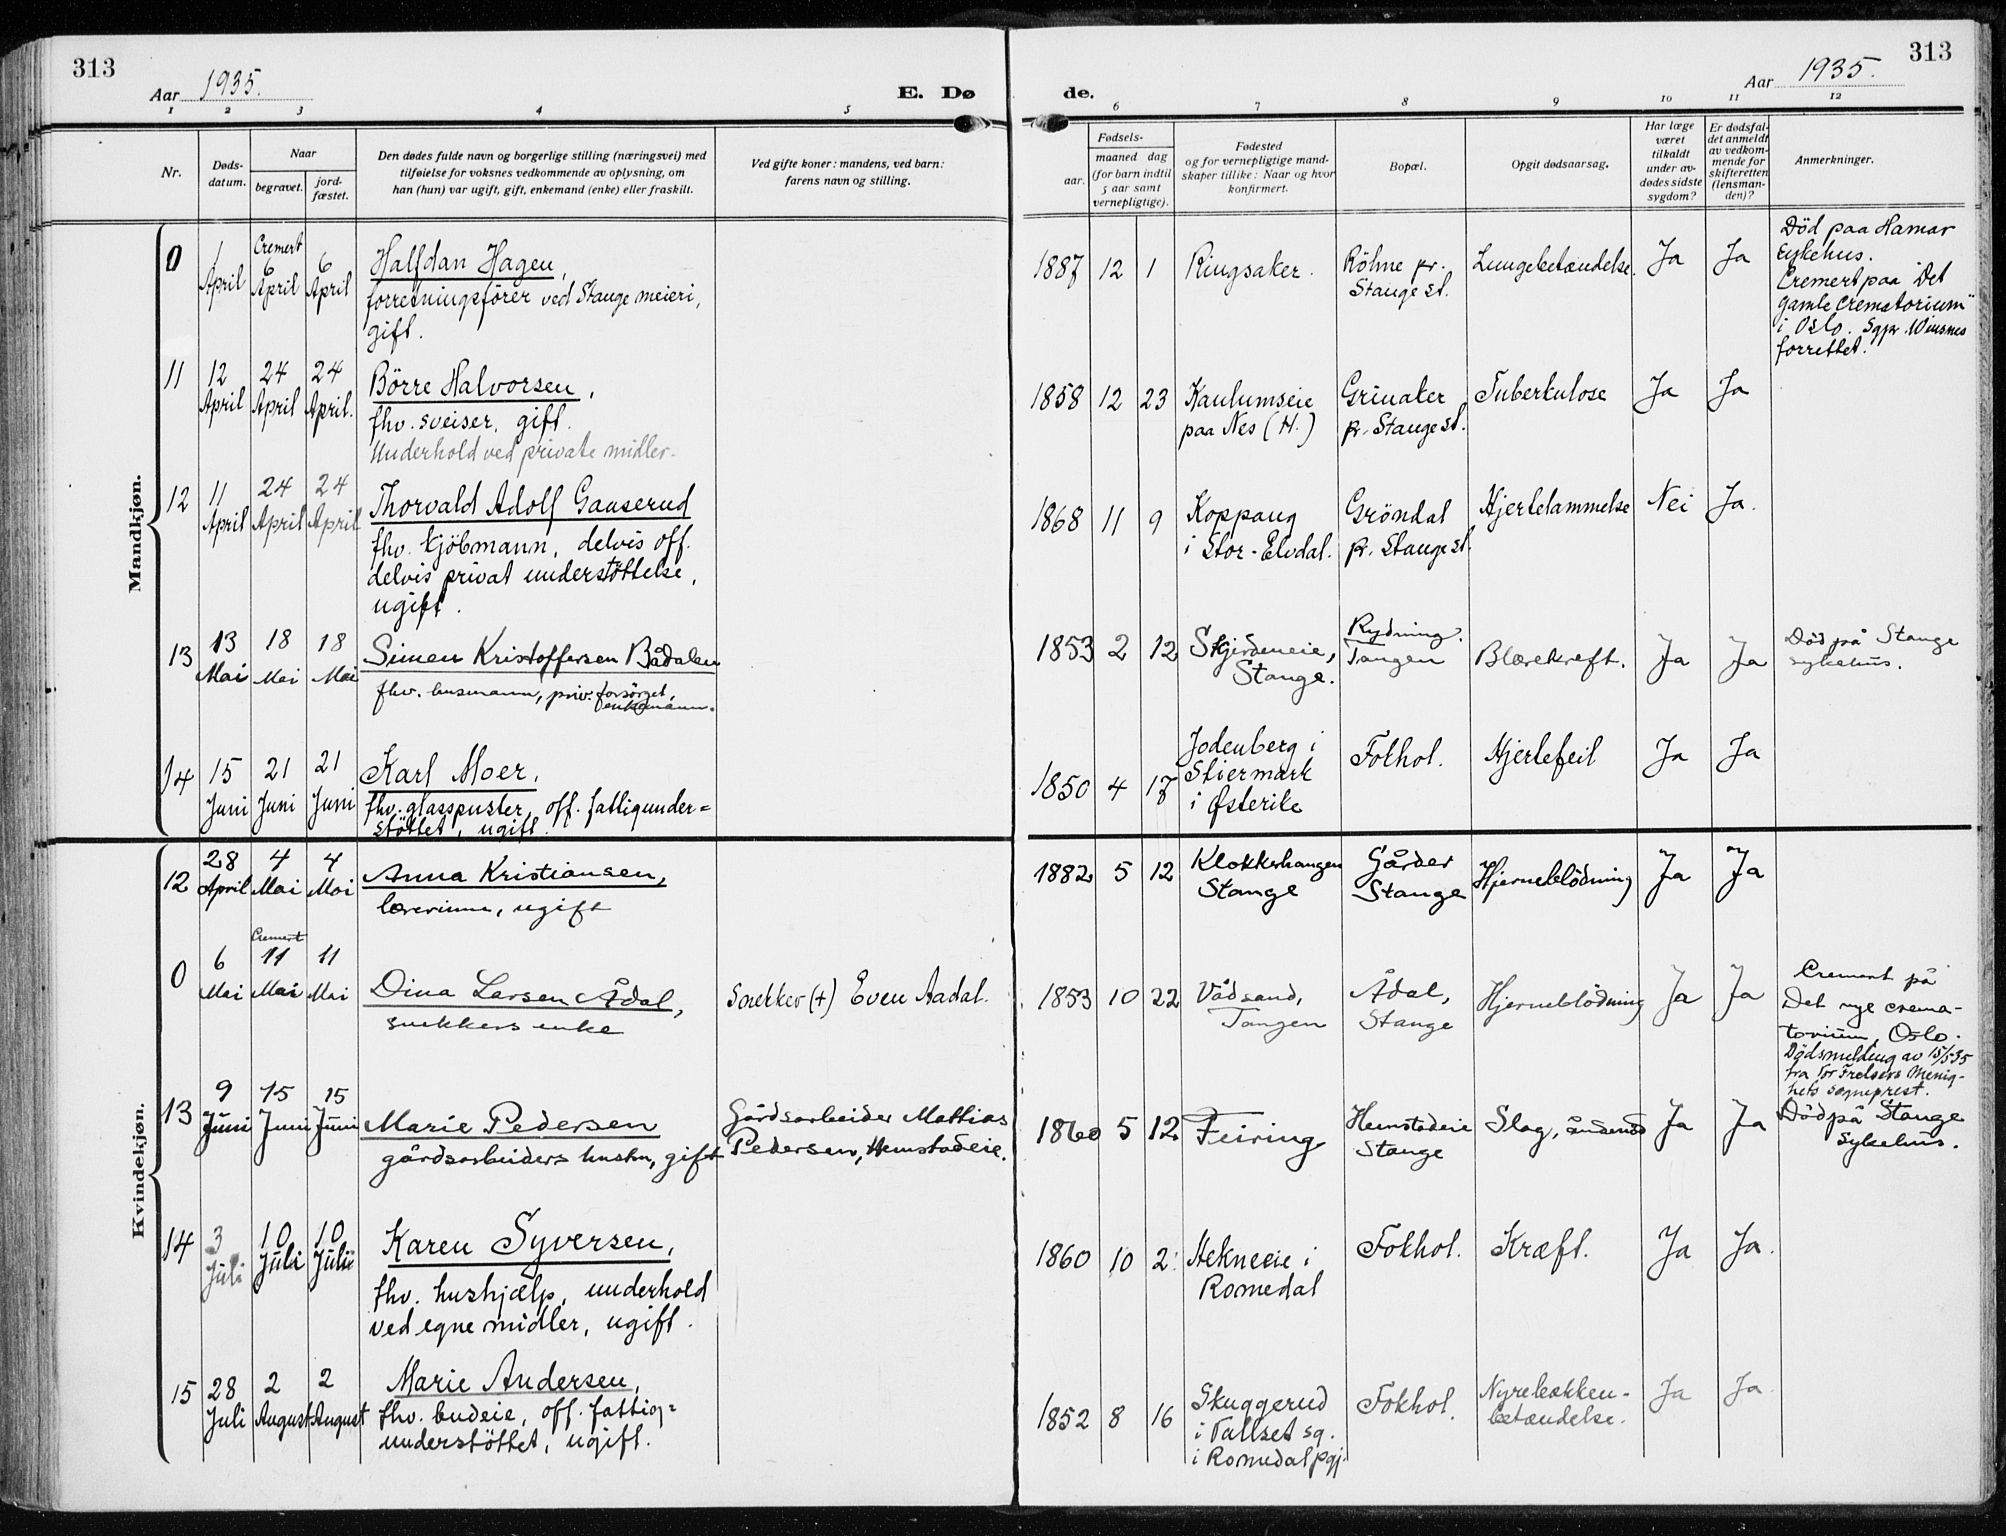 313
Aar 1935.
E. Dø
de.
Aar 1935.
313
1 2 3 4 5 6 7 8 9 10 11 12
Nr.
Døds-
datum.
Naar
begravet.
jord-
fæstet.
Den dødes fulde navn og borgerlige stilling (næringsvei) med
tilføielse for voksnes vedkommende av oplysning, om
han (hun) var ugift, gift, enkemand (enke) eller fraskilt.
Ved gifte koner: mandens, ved barn:
farens navn og stilling.
Fødsels-
aar.
maaned dag
(for barn indtil
5 aar samt
vernepligtige).
Fødested
og for vernepligtige mand-
skaper tillike: Naar og hvor
konfirmert.
Bopæl.
Opgit dødsaarsag.
Har læge
været
tilkaldt
under av-
dødes sidste
sygdom?
Er dødsfal-
det anmeldt
av vedkom-
mende for
skifteretten
(lensman-
den)?
Anmerkninger.
Mandkjøn.
0
1
April
Cremert
6
April
6
April
Halfdan Hagen,
forretningsfører ved Stange meieri,
gift.
1887 12 1
Ringsaker.
Röhne pr.
Stange st.
Lungebetændelse.
Ja
Ja
Död paa Hamar
sykehus.
Cremert paa "Det
gamle crematorium"
i Oslo. Sgpr. Winsnes
forrettet.
11
12
April
24
April
24
April.
Börre Halvorsen,
fhv. sveiser, gift.
Underhold ved private midler.
1858 12 23
Kaulumseie
paa Nes (H.)
Grinaker
pr. Stange st.
Tuberkulose
Ja
Ja
12
11
April
24
April
24
April
Thorvald Adolf Gauserud
fhv. kjöbmann, delvis off.
delvis privat understöttelse,
ugift.
1868 11 9
Koppang
i Stor-Elvdal.
Gröndal
pr. Stange st.
Hjertelammelse
Nei
Ja.
13
13
Mai
18
Mai
18
Mai
Simen Kristoffersen Bådalen
fhv. husmann, priv. forsörget,
enkemann.
1853 2 12
Skjerdeneie,
Stange.
Rydning.
Tangen
Blærekreft.
Ja
Ja
Död på Stange
sykehus.
14
15
Juni
21
Juni
21
Juni
Karl Moer,
fhv. glasspuster, off. fattigunder=
støttet, ugift.
1850 4 17
Jodenberg i
Stiermark
i Østerike
Fokhol.
Hjertefeil
Ja
Ja
Kvindekjøn.
12
28
April
4
Mai
4
Mai
Anna Kristiansen,
lærerinne, ugift
1882 5 12
Klokkerhaugen
Stange
Gårder
Stange
Hjerneblödning
Ja
Ja
0
6
Mai
Cremert
11
Mai
11
Mai
Dina Larsen Ådal,
snekkers enke
Snekker (+) Even Aadal.
1853 10 22
Vådsand,
Tangen
Ådal,
Stange
Hjerneblödning
Ja
Ja
Cremert på
Det nye crema-
torium, Oslo.
Dödsmelding av 15/5 35
fra Vor Frelsers Menig-
hets sogneprest.
13
9
Juni
15
Juni
15
Juni
Marie Pedersen
gårdsarbeiders hustru, gift
Gårdsarbeider Mathias
Pedersen, Hemstadeie.
1860 5 12
Feiring
Hemstadeie
Stange
Slag,
Ja
Ja
Död på Stange
sykehus.
14
3
Juli
10
Juli
10
Juli
Karen Syversen,
fhv. hushjælp, underhold
ved egne midler, ugift.
1860 10 2
Hekneeie i
Romedal
Fokhol.
Kræft.
Ja
Ja.
15
28
Juli
2
August
2
August
Marie Andersen,
fhv. budeie, off. fattig=
understöttet, ugift.
1852 8 16
Skuggerud
i Tallset sg.
i Romedal pgj.
Fokhol.
Nyrebækken-
betændelse.
Ja
Ja.